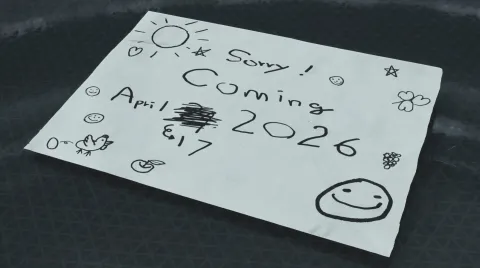 Sorry!
Coming
April 2026
17